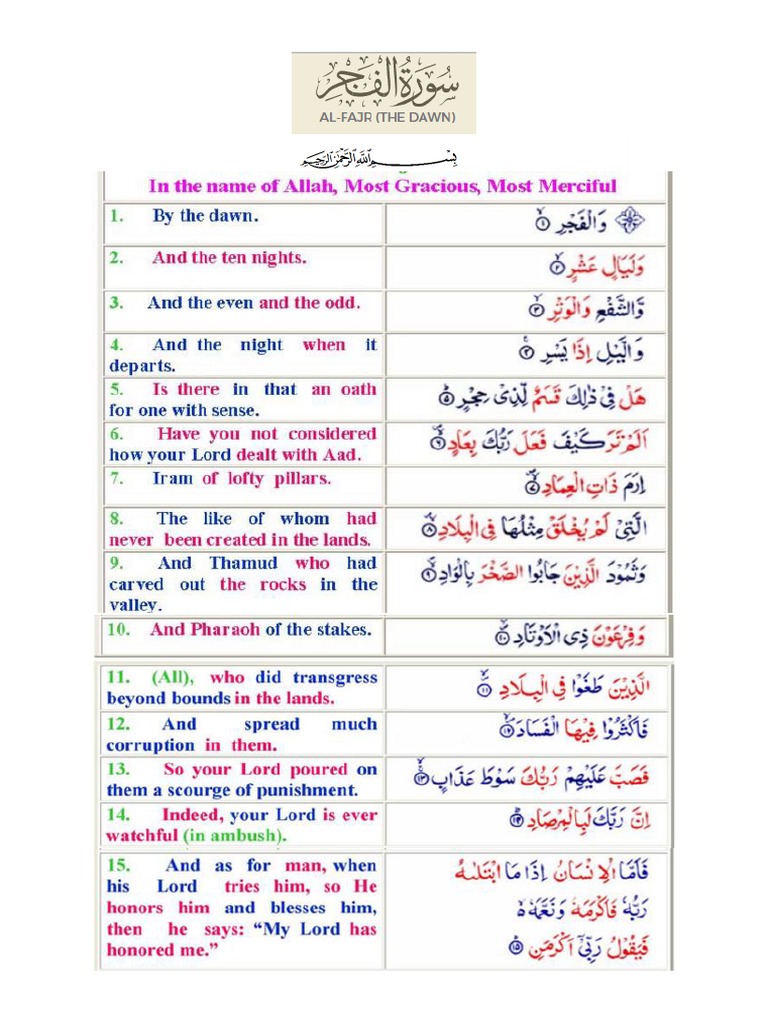 سُورَةُ الفَجْرِ
AL-FAJR (THE DAWN)
بِسْمِ اللَّهِ الرَّحْمَٰنِ الرَّحِيمِ
In the name of Allah, Most Gracious, Most Merciful
1. By the dawn.
وَالْفَجْرِ ۙ﴿۱﴾
2. And the ten nights.
وَلَيَالٍ عَشْرٍ ۙ﴿۲﴾
3. And the even and the odd.
وَّالشَّفْعِ وَالْوَتْرِ ۙ﴿۳﴾
4. And the night when it
departs.
وَالَّيْلِ اِذَا يَسْرِ ۚ﴿۴﴾
5. Is there in that an oath
for one with sense.
هَلْ فِيْ ذٰلِكَ قَسَمٌ لِّذِيْ حِجْرٍ ؕ﴿۵﴾
6. Have you not considered
how your Lord dealt with Aad.
اَلَمْ تَرَ كَيْفَ فَعَلَ رَبُّكَ بِعَادٍ ۪ۙ﴿۶﴾
7. Iram of lofty pillars.
اِرَمَ ذَاتِ الْعِمَادِ ۪ۙ﴿۷﴾
8. The like of whom had
never been created in the lands.
الَّتِيْ لَمْ يُخْلَقْ مِثْلُهَا فِي الْبِلَادِ ۪ۙ﴿۸﴾
9. And Thamud who had
carved out the rocks in the
valley.
وَثَمُوْدَ الَّذِيْنَ جَابُوا الصَّخْرَ بِالْوَادِ ۪ۙ﴿۹﴾
10. And Pharaoh of the stakes.
وَفِرْعَوْنَ ذِى الْاَوْتَادِ ۪ۙ﴿۱۰﴾
11. (All), who did transgress
beyond bounds in the lands.
الَّذِيْنَ طَغَوْا فِي الْبِلَادِ ۪ۙ﴿۱۱﴾
12. And spread much
corruption in them.
فَاَكْثَرُوْا فِيْهَا الْفَسَادَ ۪ۙ﴿۱۲﴾
13. So your Lord poured on
them a scourge of punishment.
فَصَبَّ عَلَيْهِمْ رَبُّكَ سَوْطَ عَذَابٍ ۚۙ﴿۱۳﴾
14. Indeed, your Lord is ever
watchful (in ambush).
اِنَّ رَبَّكَ لَبِالْمِرْصَادِ ؕ﴿۱۴﴾
15. And as for man, when
his Lord tries him, so He
honors him and blesses him,
then he says: “My Lord has
honored me.”
فَاَمَّا الْاِنْسَانُ اِذَا مَا ابْتَلٰىهُ
رَبُّهٗ فَاَكْرَمَهٗ وَنَعَّمَهٗ ۙ۬
فَيَقُوْلُ رَبِّيْٓ اَكْرَمَنِ ؕ﴿۱۵﴾